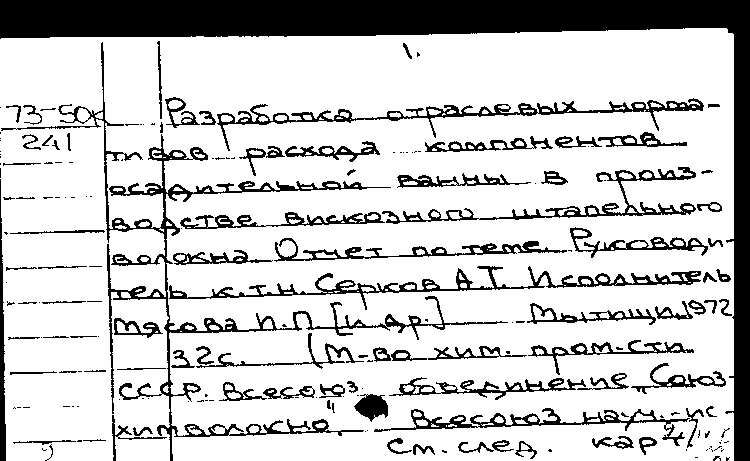 1.
73-50к
241
Разработка отраслевых норма-
тивов расхода компонентов
осадительной ванны в произ-
водстве вискозного штапельного
волокна. Отчет по теме. Руководи-
тель к.т.н. Серков А.Т. Исполнитель
Мясова И.П. [и др.] Мытищи, 1972
32с. (М-во хим. пром-сти
СССР. Всесоюз. объединение „Союз-
химволокно". Всесоюз. науч.-ис-
См. след. карт